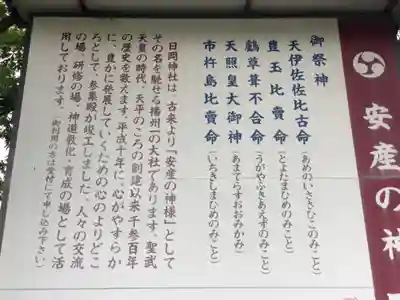 安産の神
御祭神
天伊佐佐比古命(あめのいささひこのみこと)
豊玉比賣命(とよたまひめのみこと)
鵜草葺不合命(うがやふきあえずのみこと)
天照皇大御神(あまてらすおおみかみ)
市杵島比賣命(いちきしまひめのみこと)
日岡神社は、古来より「安産の神様」として
その名を馳せる播州一の大社であります。聖武
天皇の時代、天平のころの創建以来千参百年
の歴史を数えます。平成十年に、心がやすらか
に、豊かに発展していくための心のよりどこ
ろとして、参集殿が竣工しました。人々の交流
の場、研修の場、神道教化・育成の場として活
用しております。(御利用の方は受付にて申し込み下さい)